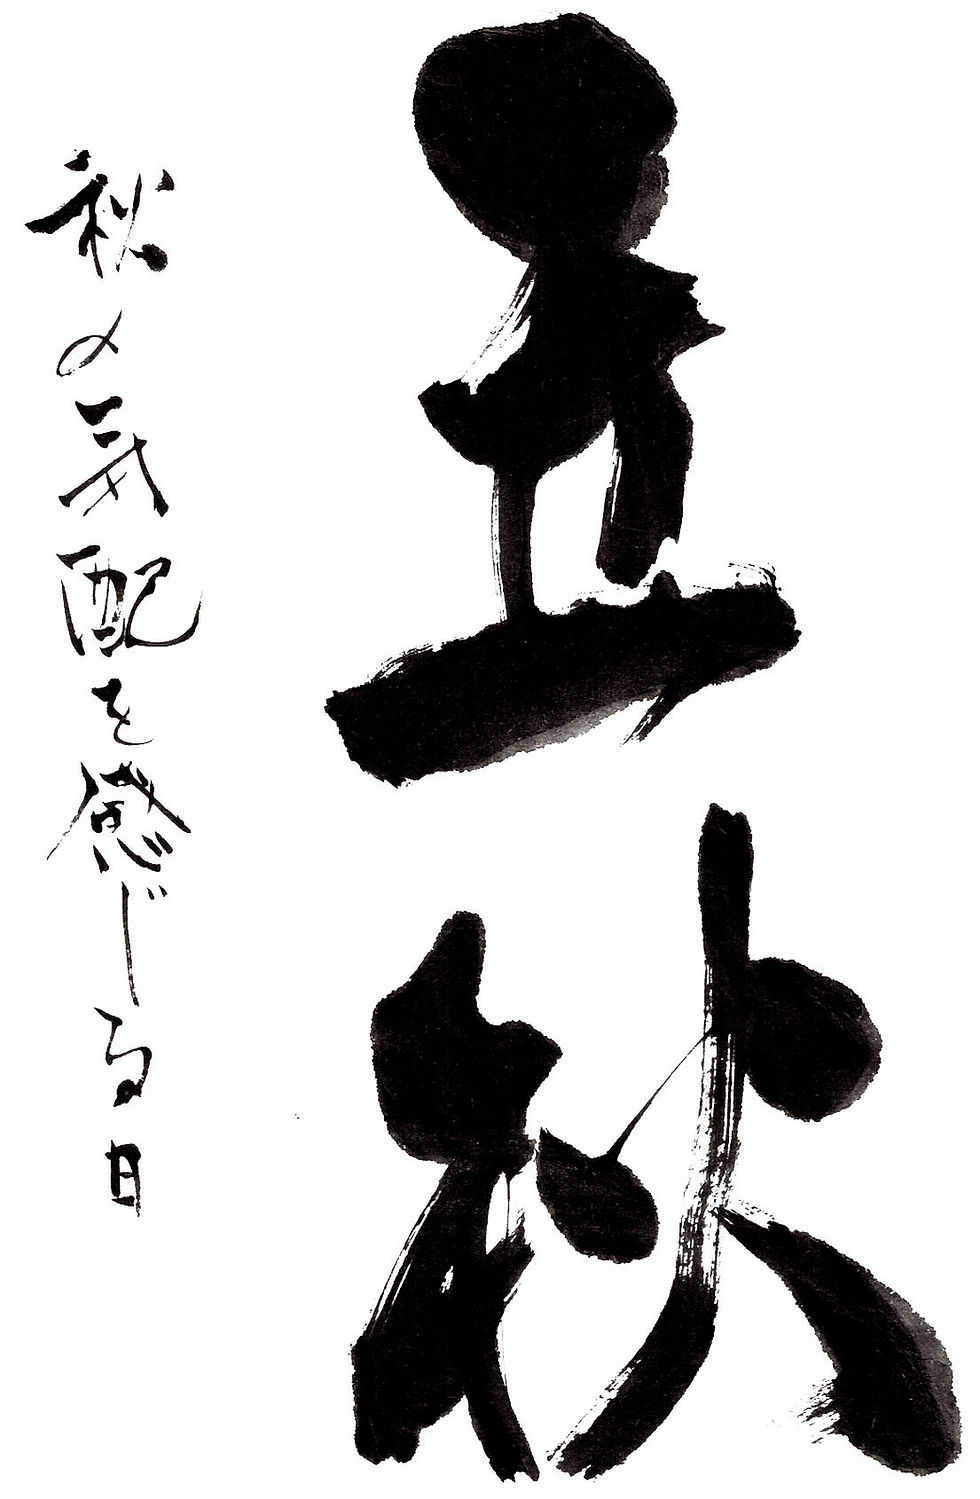 立秋
秋の気配を感じる日